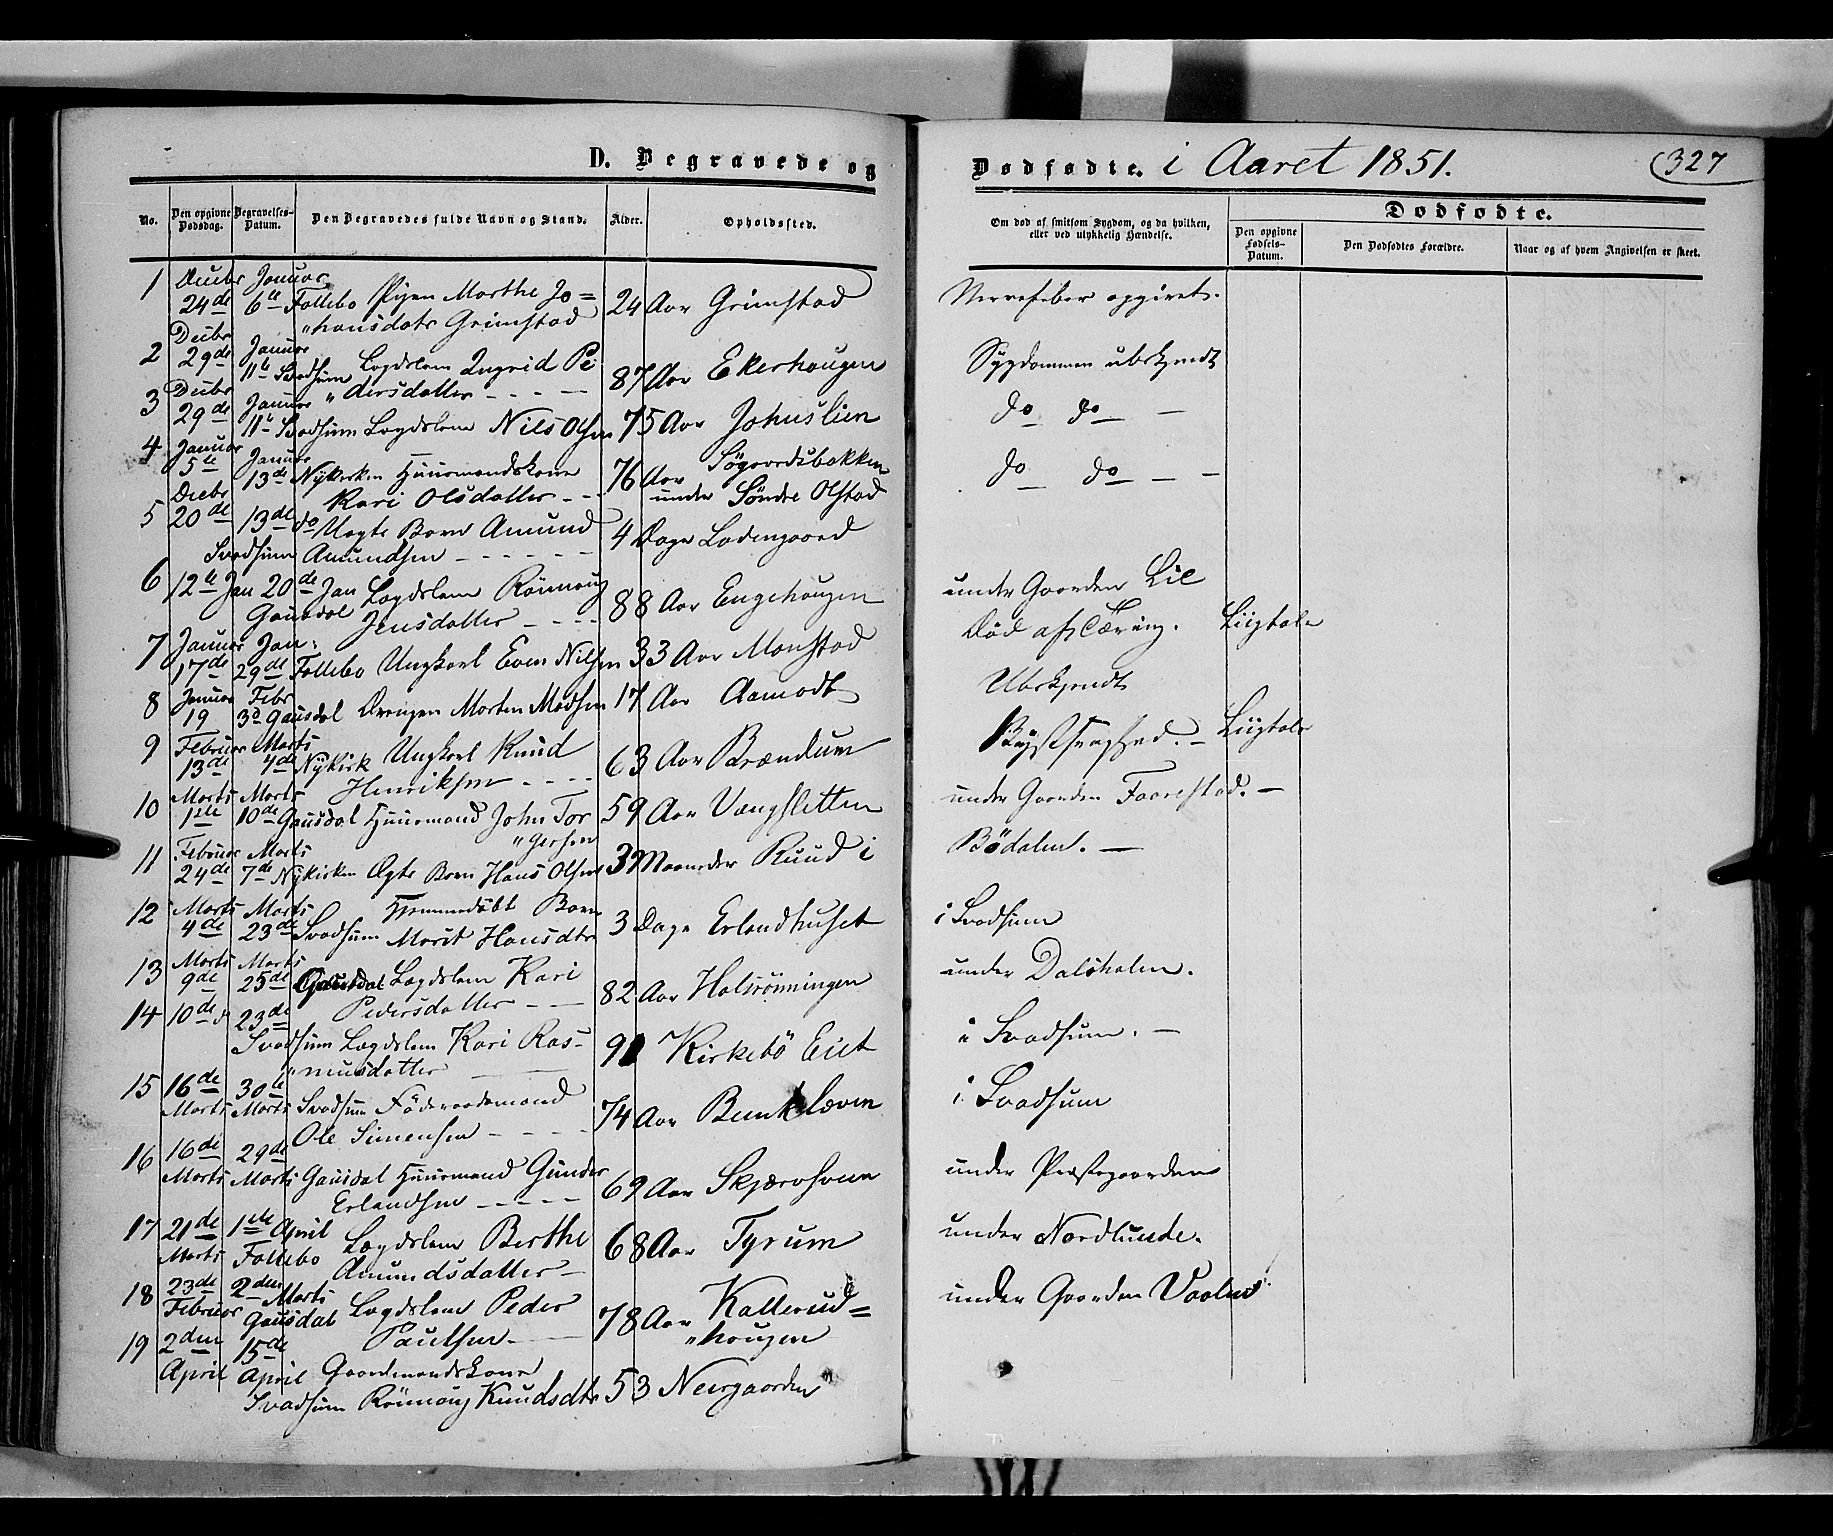 D. Begravede og
Dødfødte. i Aaret 1851.
327
No.
Den opgivne Dødsdag.
Begravelses-Datum.
Den Begravedes fulde Navn og Stand.
Alder.
Opholdssted.
Om død af smitsom Sygdom, og da hvilken, eller ved ulykkelig Hændelse.
Dødfødte.
Den opgivne Fødsels-Datum.
Den Dødfødtes Forældre.
Naar og af hvem Angivelsen er skeet.
1 Decbr Januar
24de 6te Follebo Pigen Marthe Jo= 24 Aar Grimstad Nervefeber opgivet.
"hansdatr Grimstad
2 Decbr Januar
29de 11te Svadsum Lægdslem Ingrid Pe 87 Aar Ekerhougen Sygdommen ubekjendt
"dersdatter - - - -
3 Decbr Januar
29de 11te Svadsum Lægdslem Nils Olsen 75 Aar Johuslien do do -
4 Januar Januar
5te 13de Nykirken Huusmandskone 76 Aar Søgaardsbakken do do - -
Kari Olsdatter - - under Søndre Olstad
5 Decbr
20de 13de do Uægte Barn Amund 4 Dage Ladengaard
Svadsum Amundsen - - - - - -
6 12te Jan 20de Jan Lægdslem Rønnoug 88 Aar Engehougen under Gaarden Lie
Gausdal Jensdatter - - - -
7 Januar Jan:
17de 29de Follebo Ungkarl Even Nilsen 33 Aar Manstad Død af Tæring. Liigtale
8 Januar Febr
19 3d Gausdal Drengen Morten Madsen 17 Aar Aamodt Ubekjendt
9 Februar Marts
13de 7de Nykirk Ungkarl Knud 63 Aar Brændum Brystsvaghed. - Liigtale
Henriksen - - - -
10 Marts Marts
1ste 10de Gausdal Huusmand John Tor 59 Aar Vangsletten under Gaarden Faarestad. -
"gersen
11 Februar Marts
24de 7de Nykirken Ægte Barn Hans Olsen 3 Maaneder Ruud i Bødalen. -
12 Marts Marts Hjemmedøbt Barn
4de 23de Svadsum Marit Hansdtr 3 Dage Erlandhuset i Svadsum
13 Marts Marts
9de 25de Gausdal Lægdslem Kari 82 Aar Holsrønningen under Dalshalen.
Pedersdatter - -
14 10de d 23de
Svadsum Lægdslem Kari Ras- 91 Kirkebø Eiet i Svadsum. -
"musdatter -
15 16de 30te
Marts Marts Svadsum Føderaadsmand 74 Aar Bunkelæven i Svadsum
Ole Simensen - - - -
16 16de 29de
Marts Marts Gausdal Huusmand Gunder 69 Aar Skjærvhven under Præstegaarden
Erlandsen - - - -
17 21de 1ste April Lægdslem Berthe 68 Aar Tyrum under Nordlunde.
Marts Follebo Amundsdatter -
18 23de 2den Marts
Februar Gausdal Lægdslem Peder 78 Aar Kallerud= under Gaarden Vaalen
Paulsen - "hougen
19 2den 15de
April April Gaardmandskone
Svadsum Rønnoug Knudsdtr 53 Neergaarden